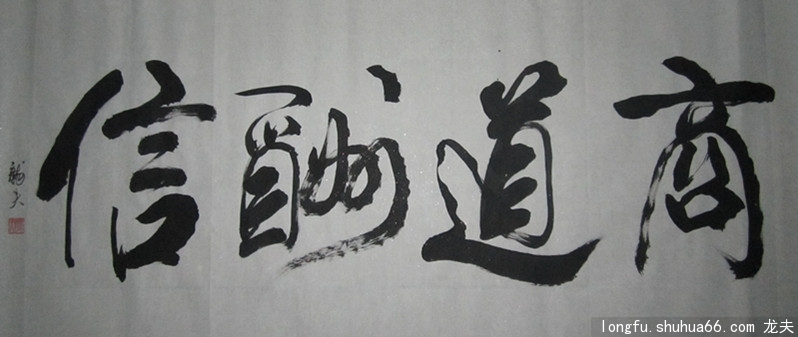 商道酬信
龍夫
longfu.shuhua66.com 龙夫